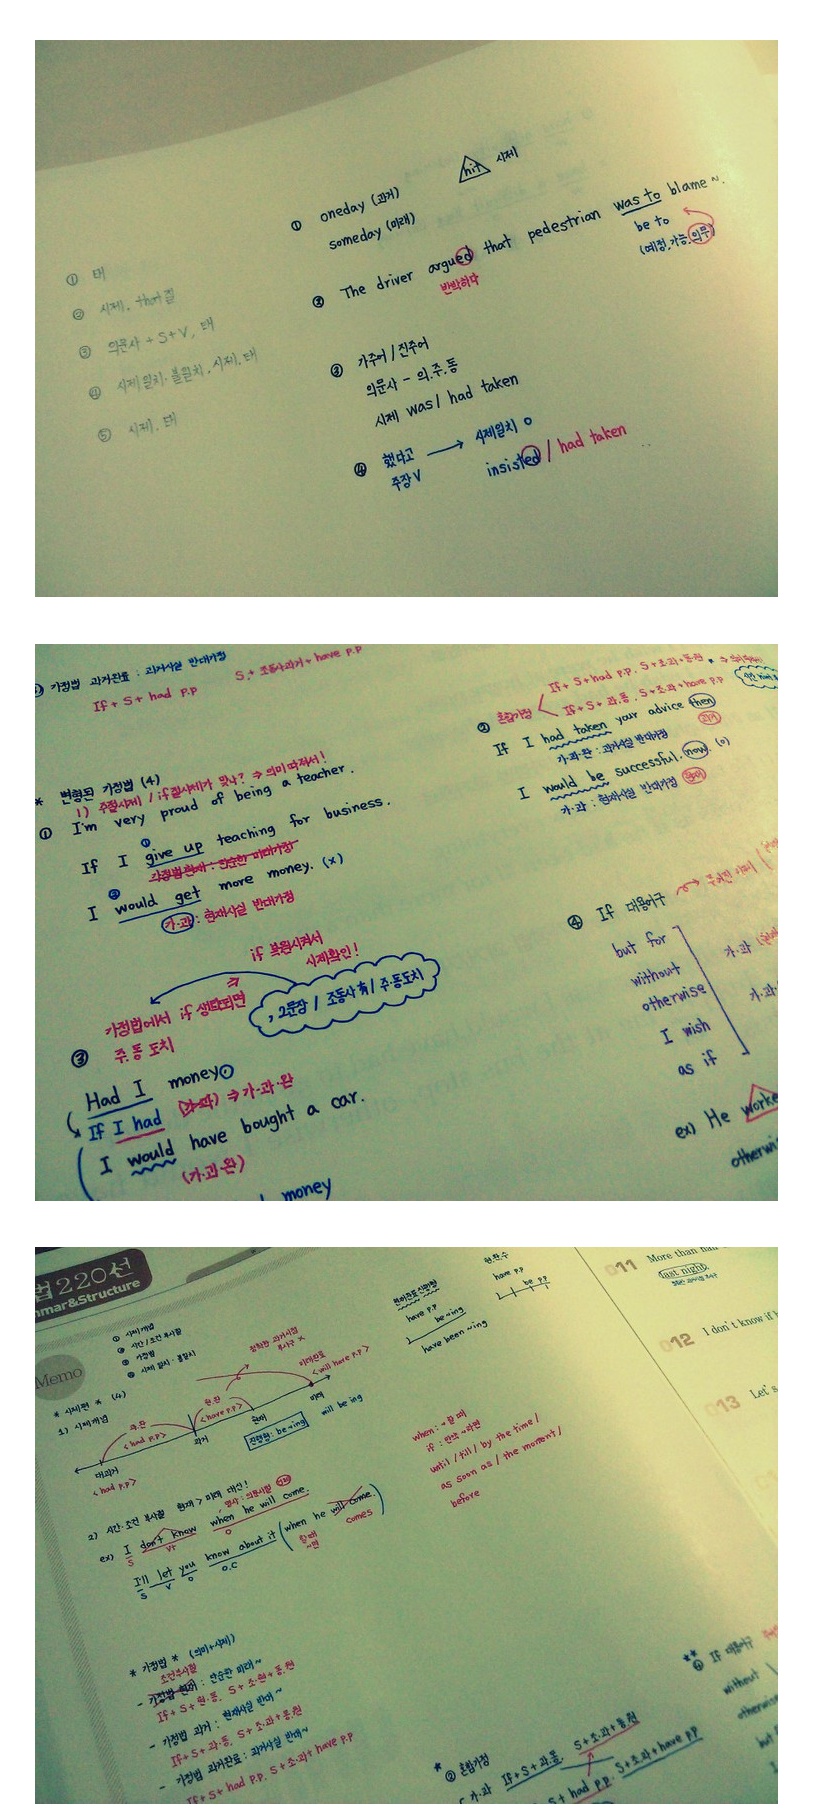 ① 태
② 시제. that절
③ 의문사 + S+V, 태
④ 시제일치·불일치, 시제, 태
⑤ 시제. 태
hit 시제
① oneday (과거)
someday (미래)
② The driver argued that pedestrian was to blame ~.
반박하다
be to
(예정, 가능, 의무)
③ 가주어 / 진주어
의문사 - 의.주.동
시제 was / had taken
④ 했다고 → 시제일치 o
주장 V
insisted / had taken
가정법 과거완료 : 과거사실 반대가정
If + S + had p.p S + 조동사과거 + have p.p
* 변형된 가정법 (4)
1) 주절시제 / if절시제가 맞나? ⇒ 의미따져서!
① I'm very proud of being a teacher.
If I give up teaching for business.
가정법현재 : 단순한 미래가정
I would get more money. (x)
가·과 : 현재사실 반대가정
if 복원시켜서
시제확인!
, 2문장 / 조동사 有 / 주·동도치
가정법에서 if 생략되면
주.동 도치
③
Had I money.
If I had (가·과) ⇒ 가·과·완
I would have bought a car.
(가·과·완)
money
② 혼합가정
If + S + had p.p. S + 조·과 + 동·원
If + S + 과·동. S + 조·과 + have p.p
If I had taken your advice then
과거
가·과·완 : 과거사실 반대가정
I would be successful. now. (o)
가·과 : 현재사실 반대가정 현재
④ If 대용어구
but for
without
otherwise
I wish
as if
가·과
가·과·
ex) He worke
otherwi
법220선
mmar&Structure
Memo
① 시제개념
② 시간/조건 부사절
③ 가정법
④ 시제 일치·불일치
* 시제편 * (4)
1) 시제개념
과·완
<had p.p>
현·완
<have p.p>
미래완료
<will have p.p>
대과거
<had p.p>
과거
현재
미래
진행형: be~ing
will be ing
명확한 과거시점
부사구 x
현재완료진행형
have p.p
be ~ing
have been ~ing
현.완.수
have p.p
be p.p
011 More than half
last night.
012 I don't know if h
013 Let's
2) 시간·조건 부사절 현재 > 미래 대신!
명사 : 의문사절
ex) I don't know when he will come.
S Vt O
I'll let you know about it (when he will come.)
S V O O.C
할 때
~면
comes
when : ~할 때
if : 만약 ~라면
until / till / by the time /
as soon as / the moment /
before
* 가정법 * (의미+시제)
조건부사절
- 가정법 현재 : 단순한 미래~
If + S + 현·동, S + 조·현 + 동·원
- 가정법 과거 : 현재사실 반대~
If + S + 과·동, S + 조·과 + 동·원
- 가정법 과거완료 : 과거사실 반대~
If + S + had p.p. S + 조·과 + have p.p
** ④ If 대용어구
without
otherwise
but f
* ② 혼합가정
가·과 If + S + 과·동. S + 조·과 + 동·원
S + had p.p. S + 조·과 + have p.p